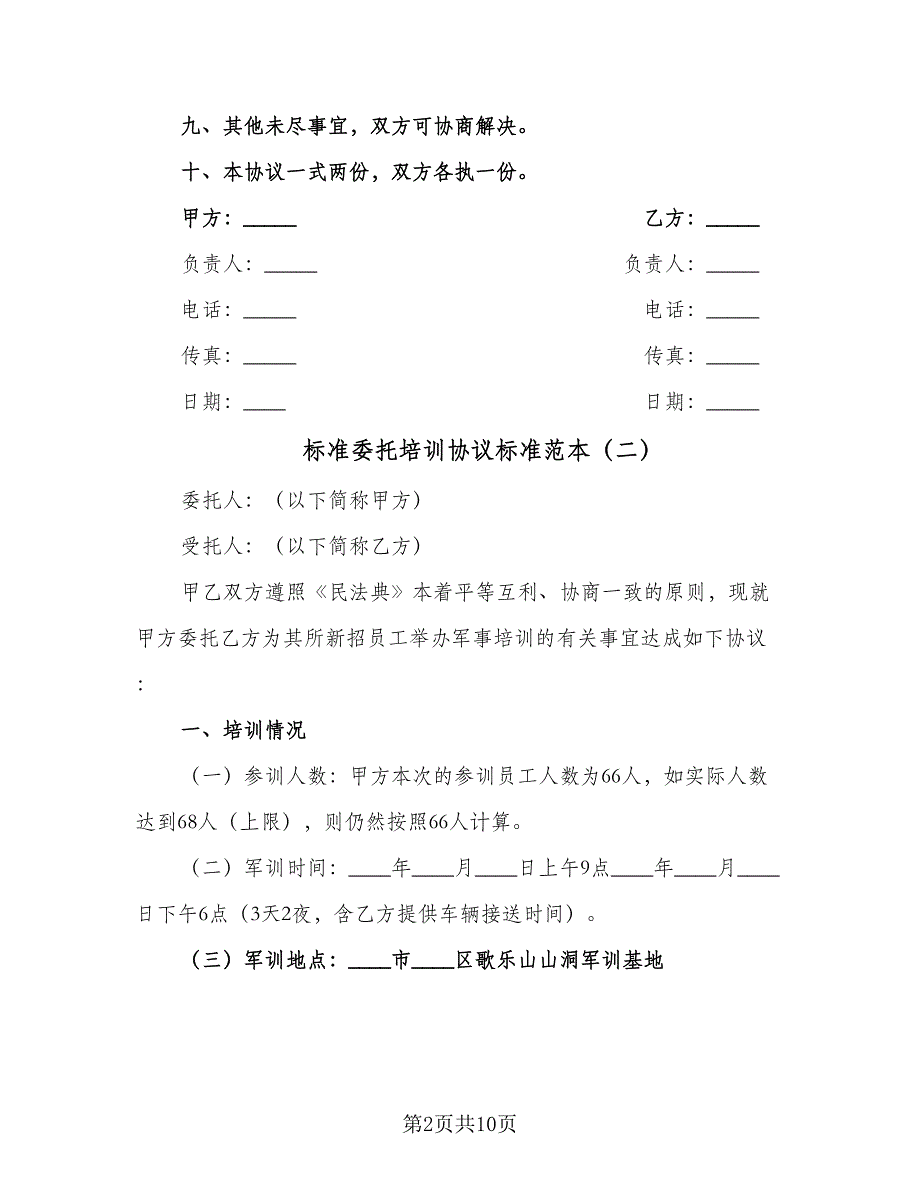 九、其他未尽事宜，双方可协商解决。
十、本协议一式两份，双方各执一份。
甲方：_____ 乙方：_____
负责人：_____ 负责人：_____
电话：_____ 电话：_____
传真：_____ 传真：_____
日期：____ 日期：_____
标准委托培训协议标准范本（二）
委托人：（以下简称甲方）
受托人：（以下简称乙方）
甲乙双方遵照《民法典》本着平等互利、协商一致的原则，现就
甲方委托乙方为其所新招员工举办军事培训的有关事宜达成如下协议
：
一、培训情况
（一）参训人数：甲方本次的参训员工人数为66人，如实际人数
达到68人（上限），则仍然按照66人计算。
（二）军训时间：____年____月____日上午9点____年____月____
日下午6点（3天2夜，含乙方提供车辆接送时间）。
（三）军训地点：____市____区歌乐山山洞军训基地
第2页共10页